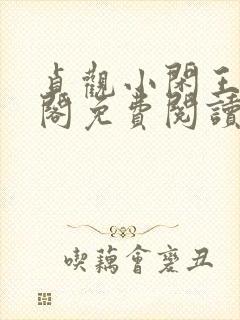 貞觀小閑王
閣免費閱讀
喫藕會變丑